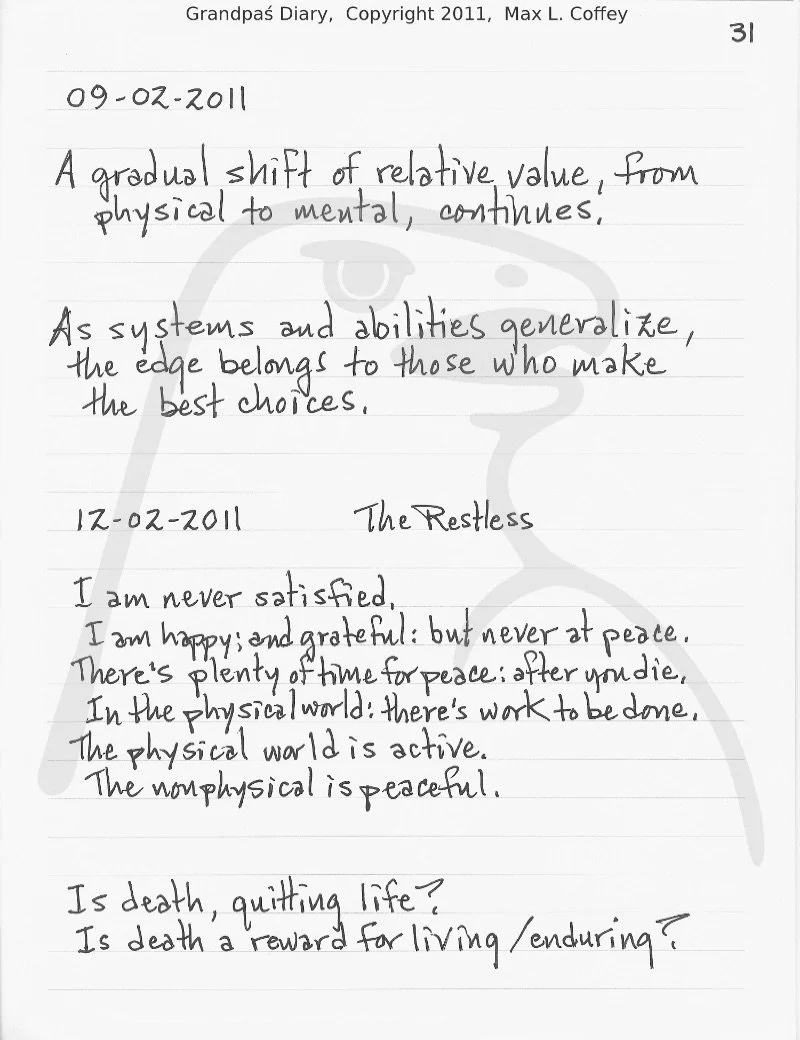 Grandpaś Diary, Copyright 2011, Max L. Coffey
31
09-02-2011
A gradual shift of relative value, from
physical to mental, continues.
As systems and abilities generalize,
the edge belongs to those who make
the best choices.
12-02-2011 The Restless
I am never satisfied.
I am happy; and grateful: but never at peace.
There's plenty of time for peace: after you die.
In the physical world: there's work to be done.
The physical world is active.
The nonphysical is peaceful.
Is death, quitting life?
Is death a reward for living/enduring?